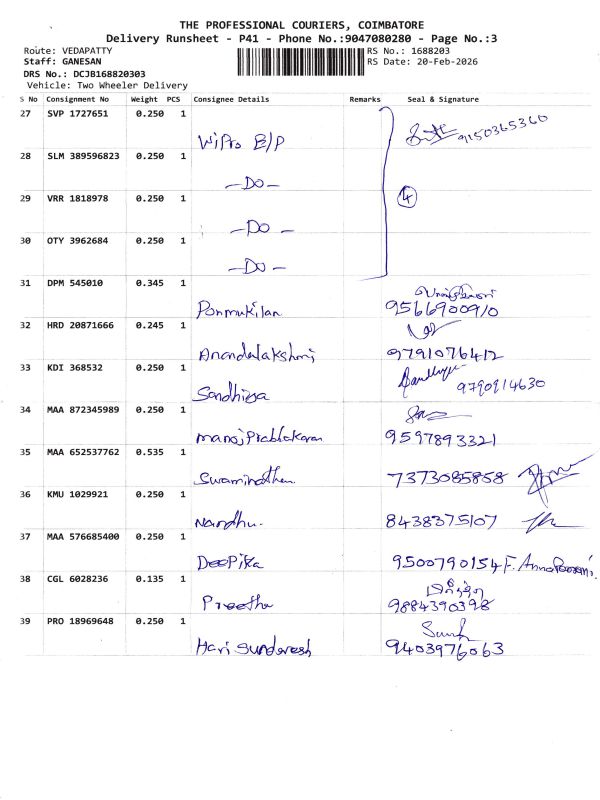 THE PROFESSIONAL COURIERS, COIMBATORE
Delivery Runsheet - P41 - Phone No.:9047080280 - Page No.:3
Route: VEDAPATTY
RS No.: 1688203
Staff: GANESAN
RS Date: 20-Feb-2026
DRS No.: DCJB168820303
Vehicle: Two Wheeler Delivery
S No Consignment No Weight PCS Consignee Details Remarks Seal & Signature
27 SVP 1727651 0.250 1
9150365360
Wipro B/P
28 SLM 389596823 0.250 1
-Do-
29 VRR 1818978 0.250 1
4
-Do-
30 OTY 3962684 0.250 1
-Do-
31 DPM 545010 0.345 1
Ponmukilan 9566900910
32 HRD 20871666 0.245 1
Anandalakshmi 9791076412
33 KDI 368532 0.250 1
9790914630
Sandhiya
34 MAA 872345989 0.250 1
Manoj Prabhakaran 9597893321
35 MAA 652537762 0.535 1
Swaminathan 7373085858
36 KMU 1029921 0.250 1
Nandhu. 8438375107
37 MAA 576685400 0.250 1
DeePika 9500790154 F.
38 CGL 6028236 0.135 1
Preetha 9884390398
39 PRO 18969648 0.250 1
Hari Sunderesh 9403976063